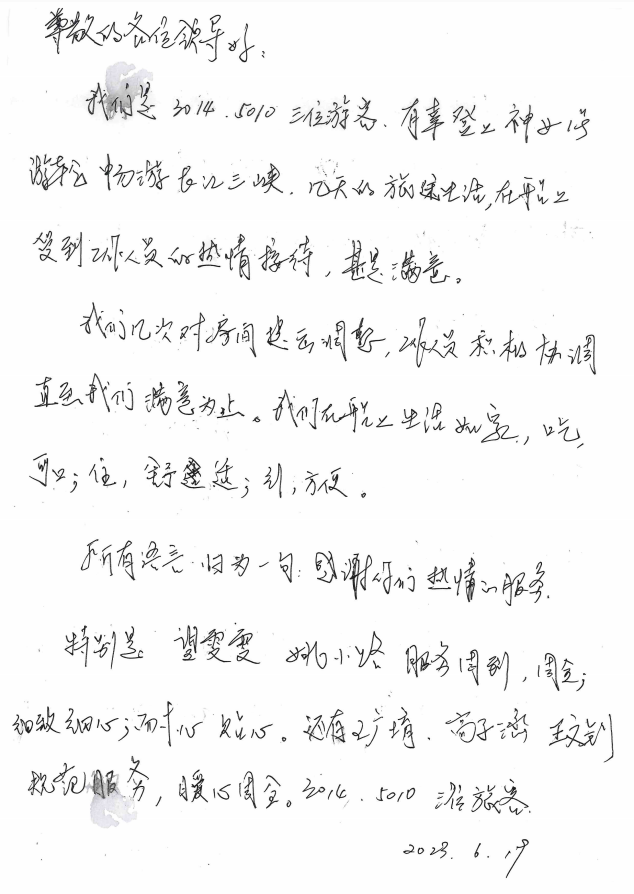 尊敬的各位领导好：
我们是3014.5010三位游客.有幸登上神女1号
游轮畅游长江三峡.几天的旅途生活,在船上
受到工作人员的热情接待，甚是满意。
我们几次对房间提出调整,工作人员积极协调
直至我们满意为止。我们在船上生活如家,，吃，
可口；住，舒适；行，方便。
所有语言归为一句:感谢你们热情的服务.
特别是 望雯雯 姚小路 服务周到，周全；
细致细心；耐心 贴心。还有 王广 . 高子涵 王文钊
规范服务，暖心周全。3014.5010 三位旅客.
2023.6.19